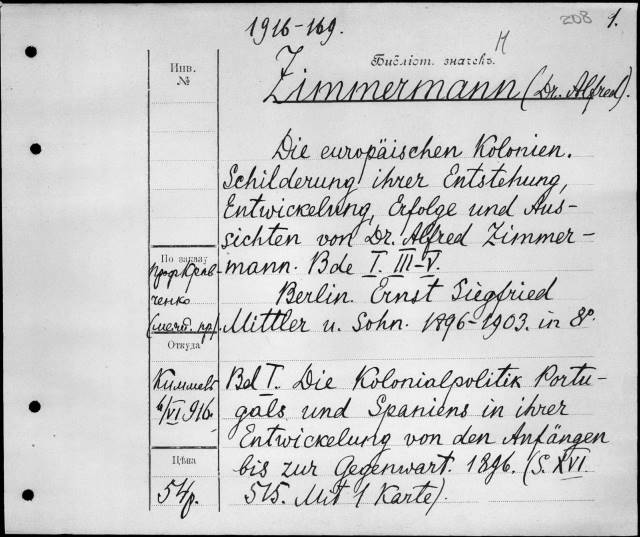 1916-169.
208 1.
Инв.
№
Библіот. значекъ.
Н
Zimmermann (Dr. Alfred).
Die europäischen Kolonien.
Schilderung ihrer Entstehung,
Entwickelung, Erfolge und Aus-
sichten von Dr. Alfred Zimmer-
mann. Bde I. III-V.
Berlin. Ernst Siegfried
Mittler u. Sohn. 1896-1903. in 8º.
По заказу
Проф. Крав-
ченко
(мечт. пр).
Откуда
Киммель
6/VI 916.
Цѣна
54 р.
Bd I. Die Kolonialpolitik Portu-
gals und Spaniens in ihrer
Entwickelung von den Anfängen
bis zur Gegenwart. 1896. (S. XVI.
515. Mit 1 Karte).